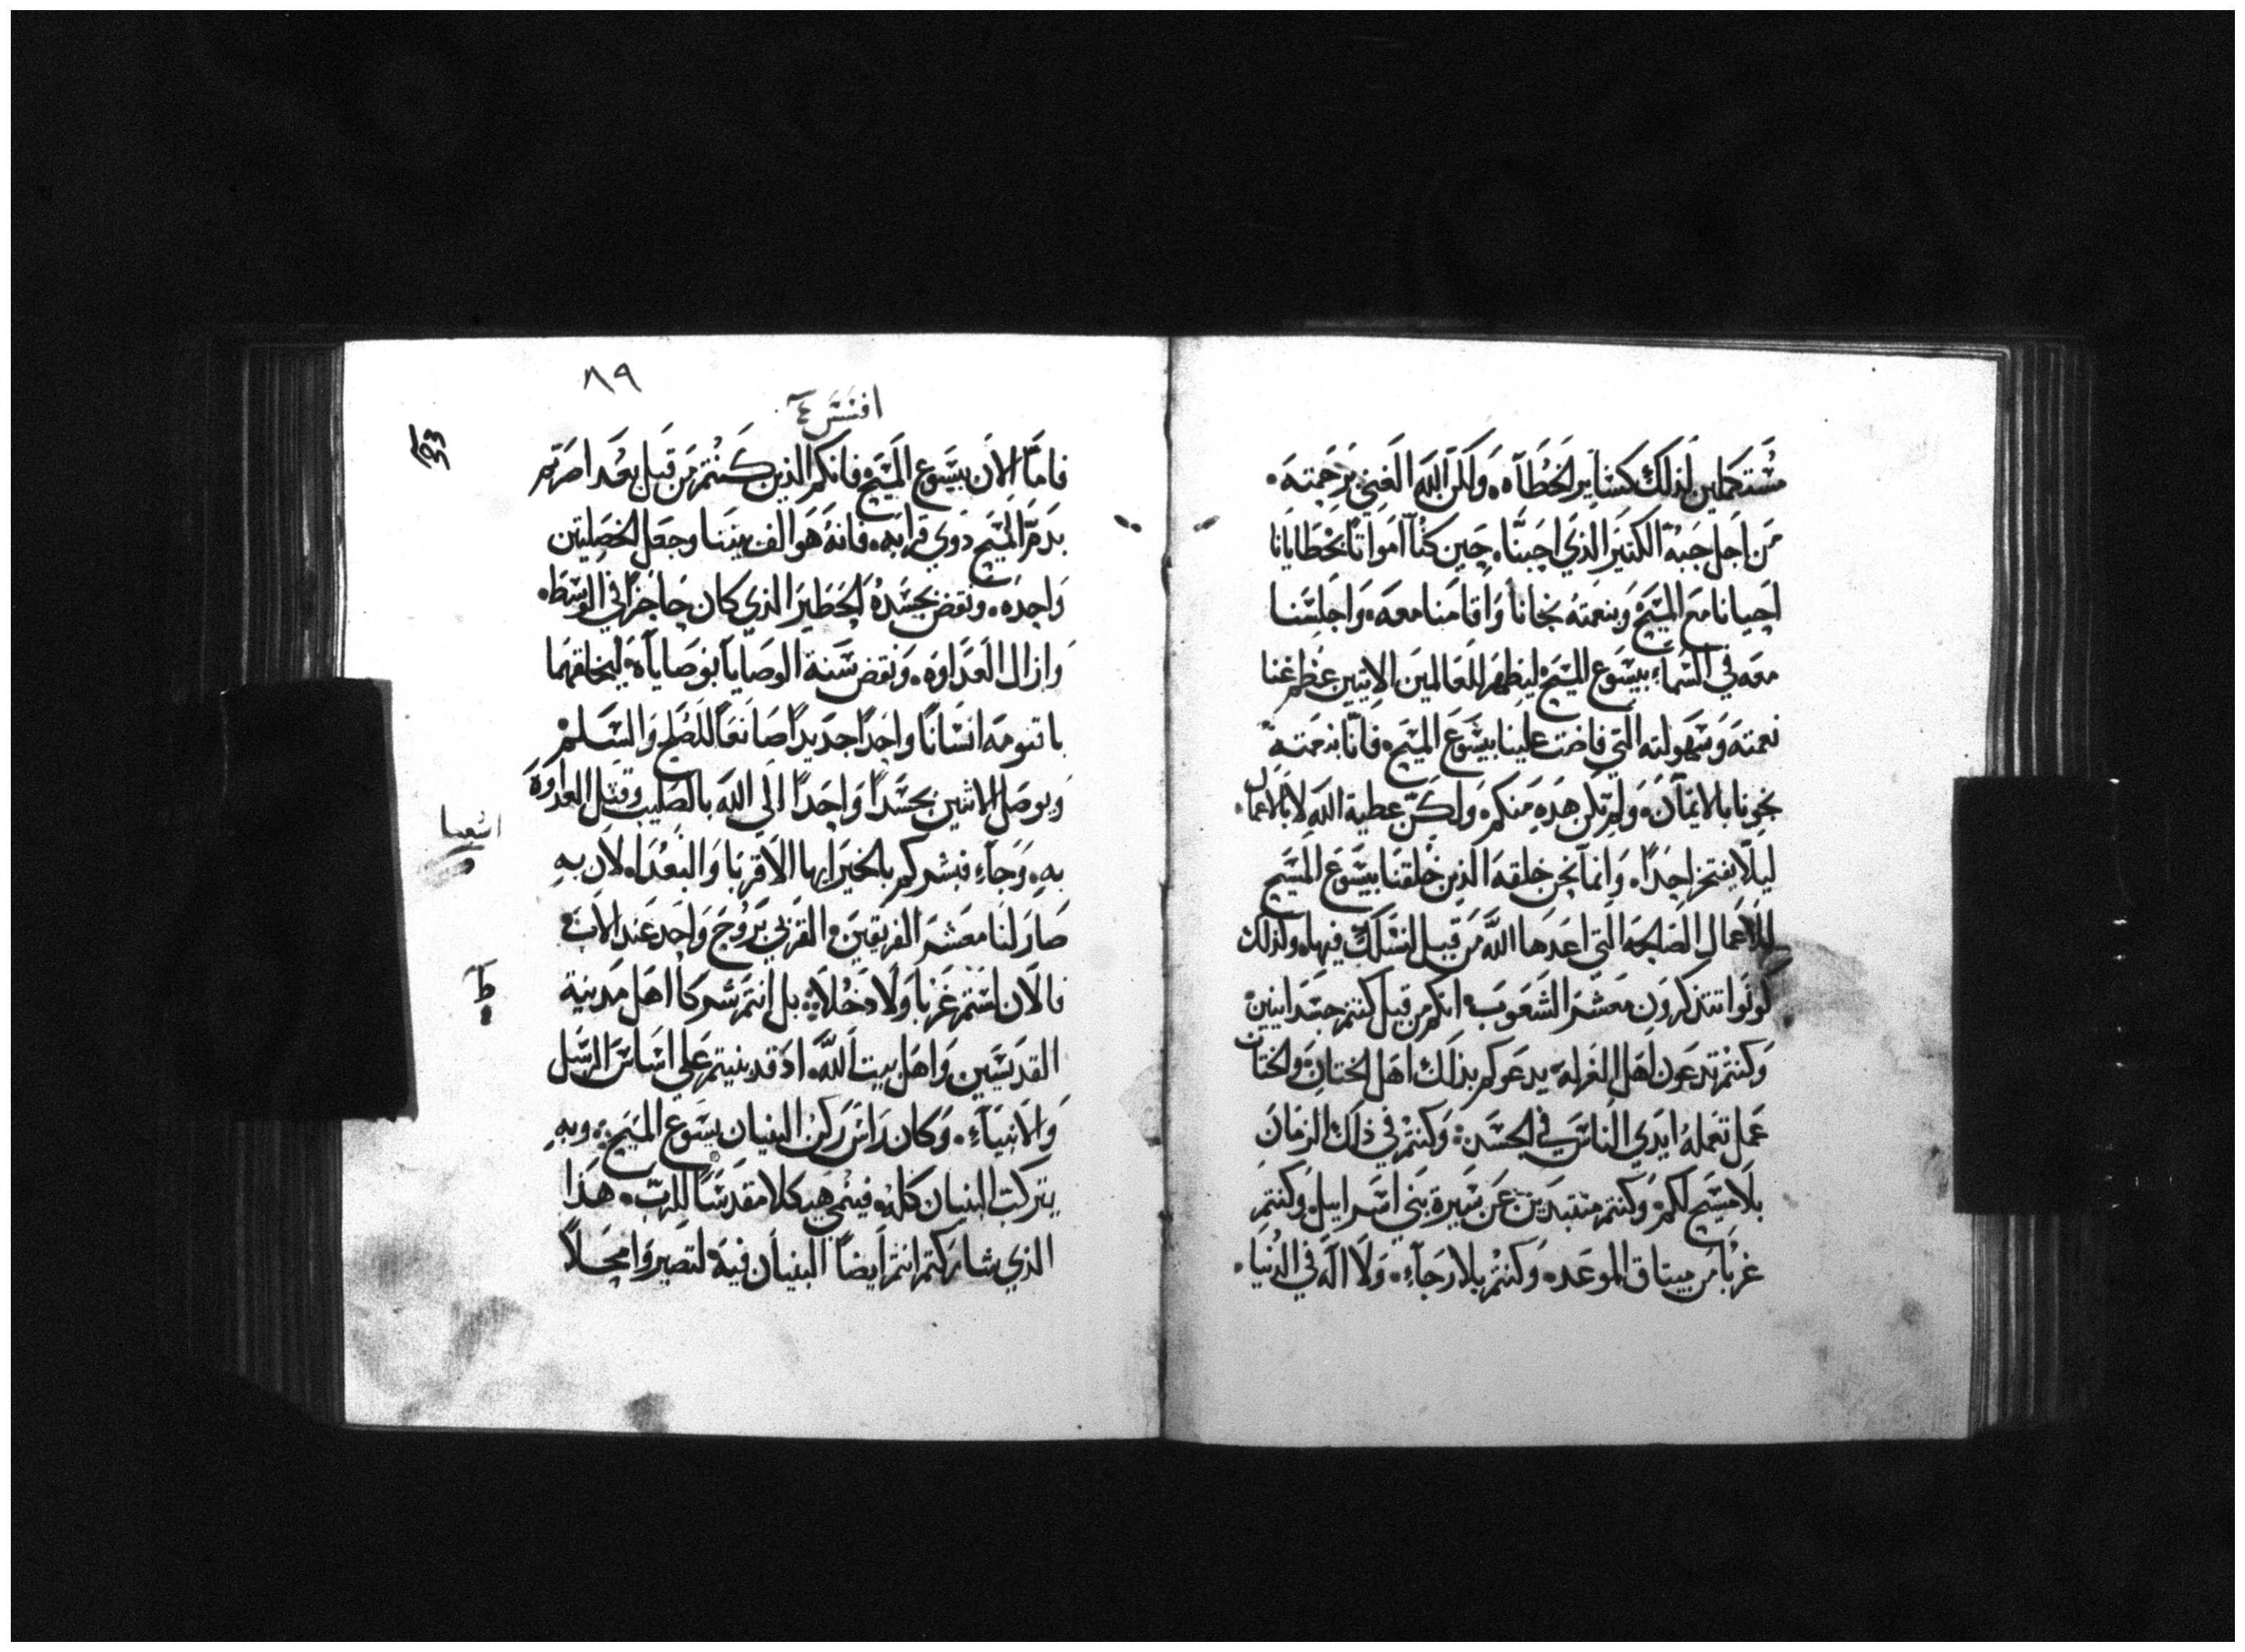 مستحملين لذلك كساير الخطآه. ولكن الله الغني برحمته.
من اجل حبه الكثير الذي احبنا. حين كنا امواتا بخطايانا
احيانا مع المسيح وبنعمته نجانا واقامنا معه. واجلسنا
معه في السماء بيسوع المسيح ليظهر للعالمين الاتيين عظم غنا
نعمته وسهولته التي فاضت علينا بيسوع المسيح. فانا بنعمته
نجونا بالايمان. ولم تكن هده منكم. ولكن عطية الله لا بالاعمال.
ليلا يفتخر احدا. وانما نحن خلقه الذين خلقنا بيسوع المسيح
للاعمال الصالحه التي اعدها الله من قبل لنسلك فيها. ولذلك
كونوا تتذكرون معشر الشعوب. انكم من قبل كنتم جسدانيين
وكنتم تدعون اهل الغرله. يدعوكم بذلك اهل الختان. والختان
عمل تعمله ايدي الناس في الجسد. وكنتم في ذلك الزمان
بلا مسيح لكم. وكنتم متبعدين عن سيرة بني اسراييل. وكنتم
غربا من ميتاق الموعد. وكنتم بلا رجاء. ولا اله في الدنيا.
٨٩
افسس ٤
فاما الان بيسوع المسيح فانكم الذين كنتم من قبل بعدا صرتم
بدم المسيح دوي قرابه. فانه هو الف بيننا وجعل الخصلتين
واحده. ونقض بجسده الحظير الذي كان حاجزا في الوسط.
وازال العداوه. ونقض سنة الوصايا بوصاياه. ليخلقهما
باقنومه انسانا واحدا جديدا صانعا للصلح والسلم
ويوصل الاثنين بجسدا واحدا الى الله بالصليب وقتل العداوه
به. وجاء فبشركم بالخير ايها الاقربا والبعدا. لان به
صار لنا معشر الفريقين القربي بروح واحد عند الاب
اشعيا
فالان لستم غربا ولا دخلا. بل انتم شركا اهل مدينة
ط
القديسين. واهل بيت الله. اد قد بنيتم على اساس الرسل
والانبياء. وكان راس ركن البنيان يسوع المسيح. وبه
يتركب البنيان كله. فينمي هيكلا مقدسا للرب. هدا
الذي شاركتم انتم ايضا البنيان فيه لتصيروا محلا